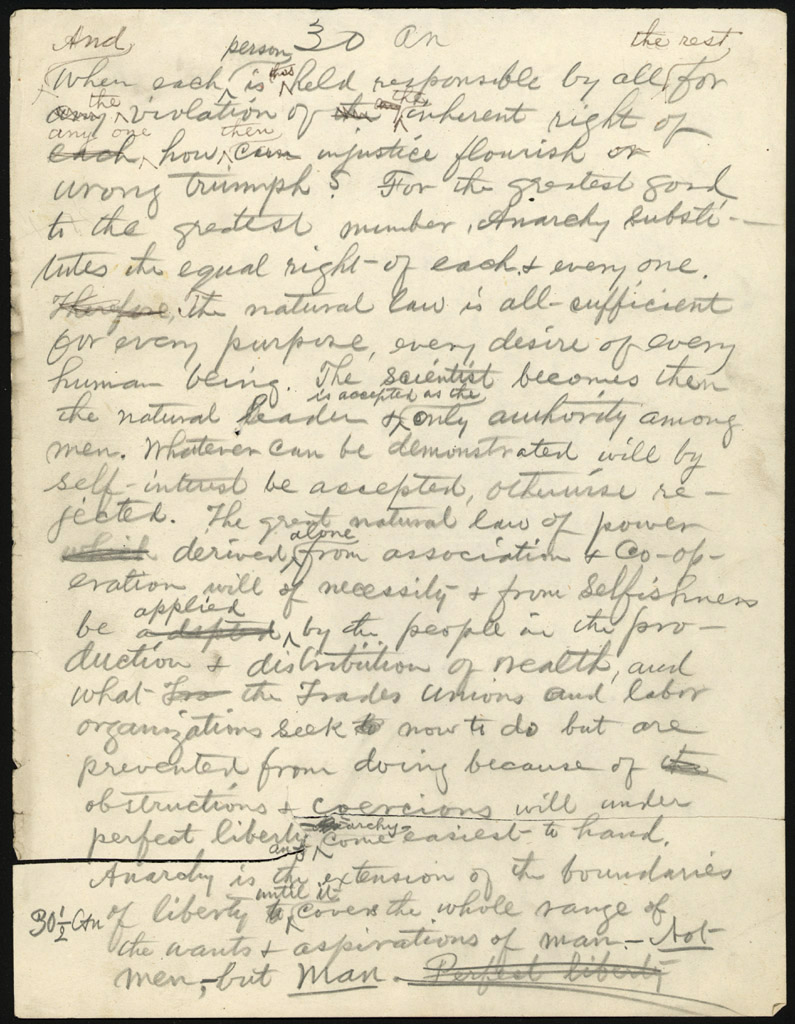 30 An
And person thus the rest
When each is held responsible by all for
any the violation of the the inherent right of
any one then
each how can injustice flourish or
wrong triumph? For the greatest good
to the greatest number, Anarchy substi-
tutes the equal right of each & every one.
Therefore, the natural law is all-sufficient
for every purpose, every desire of every
human being. The scientist becomes then
is accepted as the
the natural leader & only authority among
men. Whatever can be demonstrated will by
self-interest be accepted, otherwise re-
jected. The great natural law of power
alone
which derived from association & Co-op-
eration will of necessity & from selfishness
applied
be adopted by the people in the pro-
duction & distribution of wealth, and
what the Trades unions and labor
organizations seek to now to do but are
prevented from doing because of the
obstructions & coercions will under
Anarchy-
perfect liberty come easiest to hand.
and
Anarchy is the extension of the boundaries
until it
30½ An of liberty covers the whole range of
the wants & aspirations of man.- Not
men,-but Man. Perfect liberty